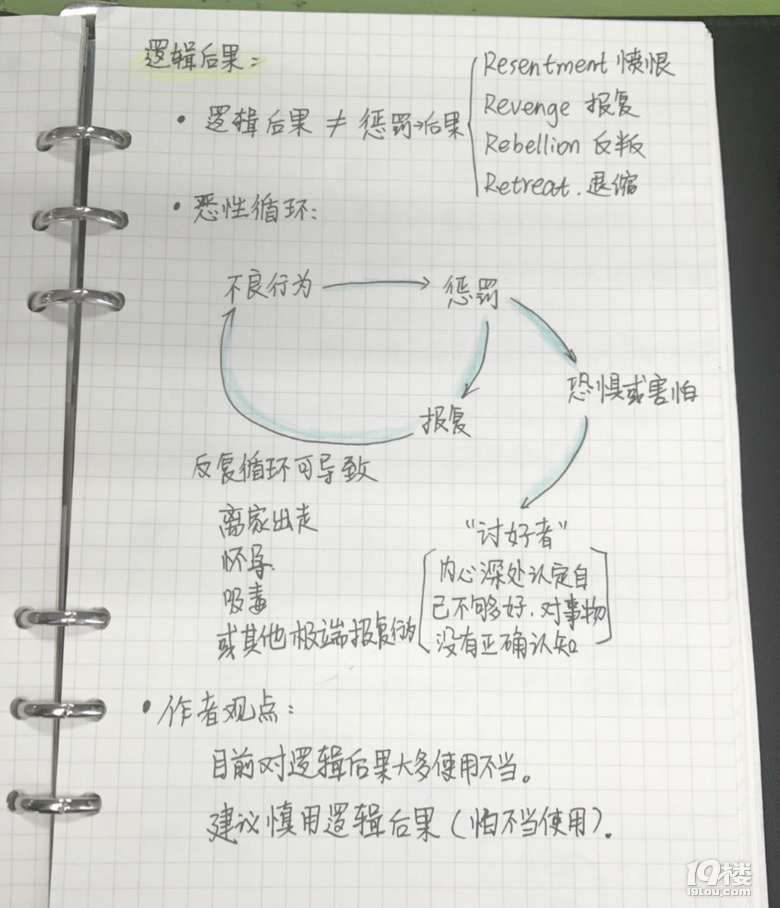 逻辑后果：
• 逻辑后果 ≠ 惩罚→后果
Resentment 愤恨
Revenge 报复
Rebellion 反叛
Retreat. 退缩
• 恶性循环：
不良行为 → 惩罚
恐惧或害怕
报复
反复循环可导致
离家出走
怀孕
吸毒
或其他极端报复行为
“讨好者”
内心深处认定自
己不够好．对事物
没有正确认知
• 作者观点：
目前对逻辑后果大多使用不当。
建议慎用逻辑后果（怕不当使用）．
19楼
19lou.com